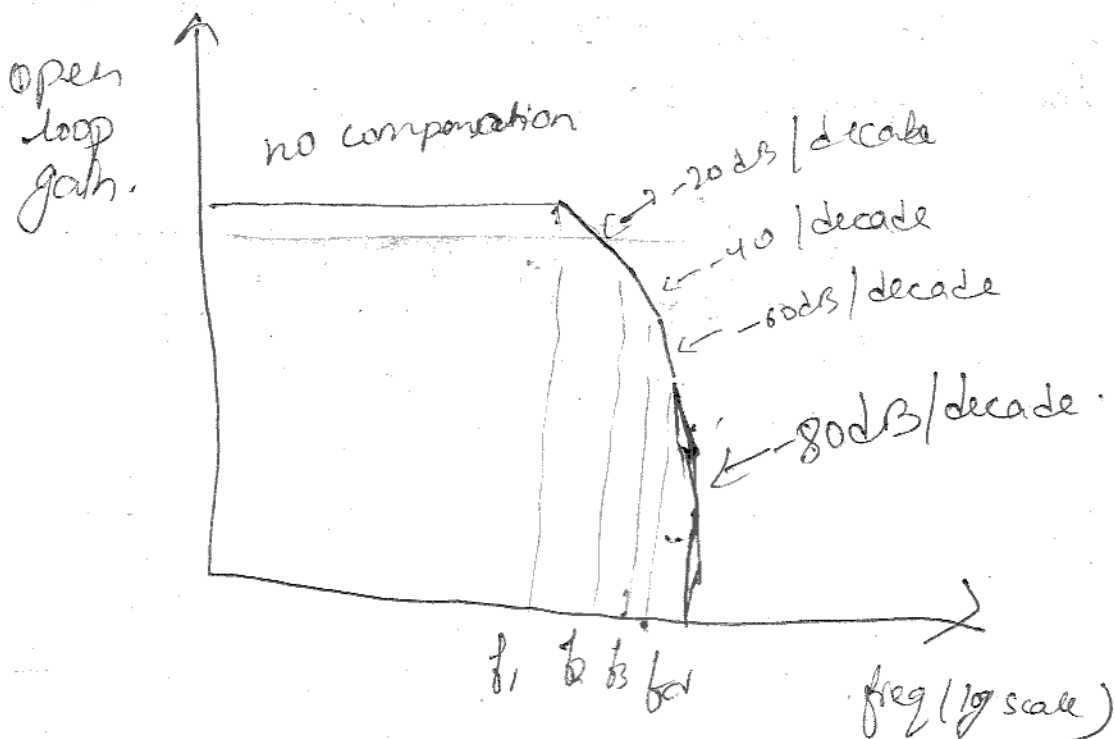 open
loop
gain.
no compensation
-20dB/decade
-40/decade
-60dB/decade
-80dB/decade.
f1 f2 f3
freq (log scale)